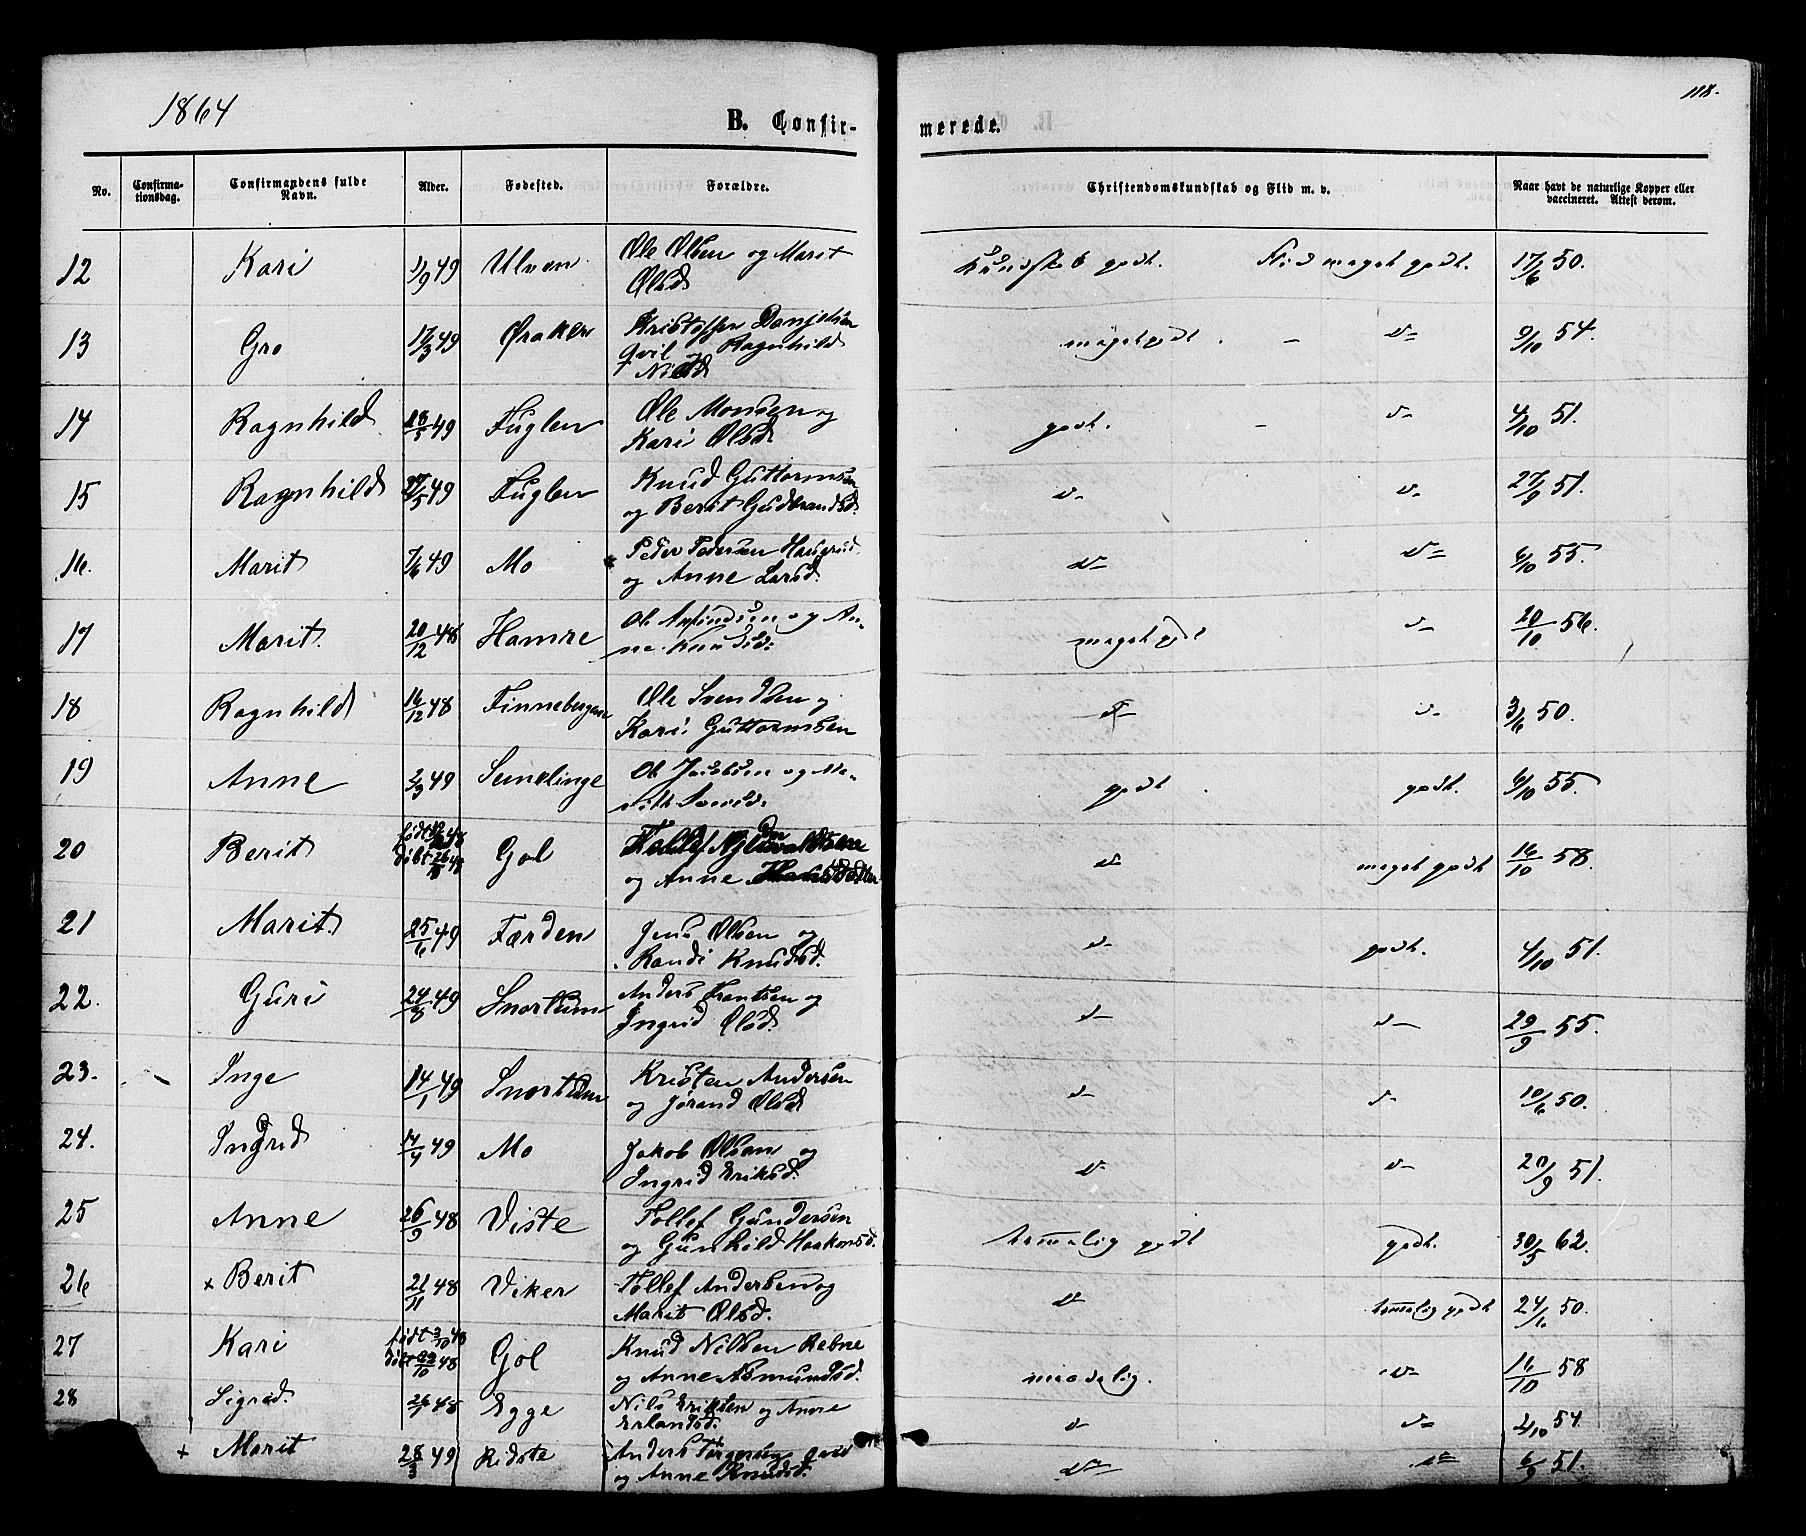 1864
118.
B. Confir-
merede.
No.
Confirma-
tionsdag.
Confirmandens fulde
Navn.
Alder.
Fødested.
Forældre.
Christendomskundskab og Flid m. v.
Naar havt de naturlige Kopper eller
vaccineret. Attest derom.
12 Kari 1/9 49 Ulven Ole Olsen og Marit
Olsd Kundskab godt. Flid meget godt. 17/6 50.
13 Gro 17/3 49 Øraker Kristoffer Danjelsen
Qvil og Ragnhild
Nilsd meget godt. – d– 9/10 54.
14 Ragnhild 28/5 49 Fuglen Ole Monsen og
Kari Olsd. godt. – d– 4/10 51.
15 Ragnhild /5 49 Fuglen Knud Guttormsen
og Berit Gudbrandsd. d– d– 27/9 51.
16. Marit 7/6 49 Mo Peder Pedersen Haugrud
og Anne Larsd. d– d– 6/10 55.
17 Marit. 20/12 48 Hamre Ole Arfindsen og An-
ne Knudsd: meget godt d– 20/10 56.
18 Ragnhild 16/12 48 Finnebergene Ole Svendsen og
Kari Guttormsen d– d– 3/6 50.
19 Anne 2/3 49 Semelinge Ole Jacobsen og Ma-
rith Svensd. godt. godt. 6/10 55.
20 Berit født 48
døbt 48 Gol
og Anne d– meget godt 16/10 58
21 Marit. 25/6 49 Færden Jens Olsen og
Randi Knudsd. d– godt. 4/10 51.
22. Guri 24/ 49 Snortum Anders Frantsen og
Ingrid Olsd. d– d– 29/9 55.
23. Inge 14/1 49 Snortum Kristen Andersen
og Jørand Olsd d– d– 10/6 50.
24. Ingrid 14/4 49 Mo Jakob Olsen og
Ingrid Eriksd. d– d– 20/9 51.
25 Anne 26/9 48 Viste Tollef Gundersen
og Gunhild Haakonsd. temmelig godt godt. 30/5 62.
26 × Berit 21/11 48 Viker Tollef Andersen og
Marit Olsd. d– temmelig godt 24/6 50.
27 Kari født 3/10 48
døbt 22/10 48 Gol Knud Nilsen Rebne
og Anne Asmundsd. maadelig. d– 16/10 58
28 Sigrid. 48 Egge Nils Eriksen og Anne
Erlandsd. d– d– 2/10 54.
+ Marit 28/3 49 Ridste Anders Torgersen qvil
og Anne Knudsd. d– d– 6/9 51.